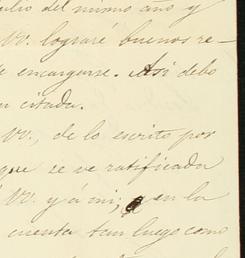 ulio del mismo año y
VV. lograré buenos re-
encargarse. Así debo
citada.
VV., de lo escrito por
que se ve ratificada
VV. y á mi; en la
cuenta tan luego como